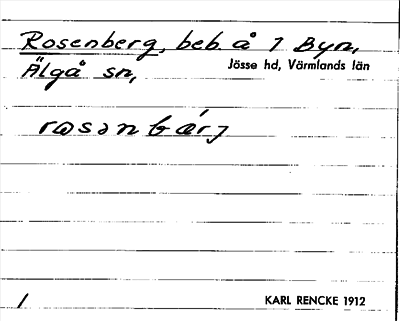 Rosenberg, beb. å 1 Byn,
Älgå sn, Jösse hd, Värmlands län
rosənbárj
1 KARL RENCKE 1912